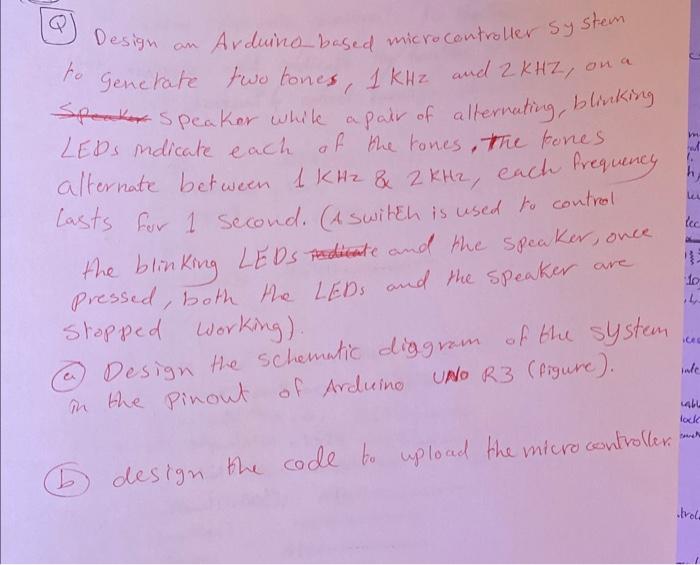 Q Design an Arduino-based microcontroller system
to generate two tones, 1 KHz and 2 KHZ, on a
Speaker while a pair of alternating, blinking
LEDs indicate each of the tones. The tones
alternate between 1 KHz & 2 KHz, each frequency
lasts for 1 second. (A switch is used to control
the blinking LEDs and the speaker, once
pressed, both the LEDs and the speaker are
stopped working).
a Design the schematic diggram of the system
in the pinout of Arduino UNO R3 (figure).
b design the code to upload the microcontroller.